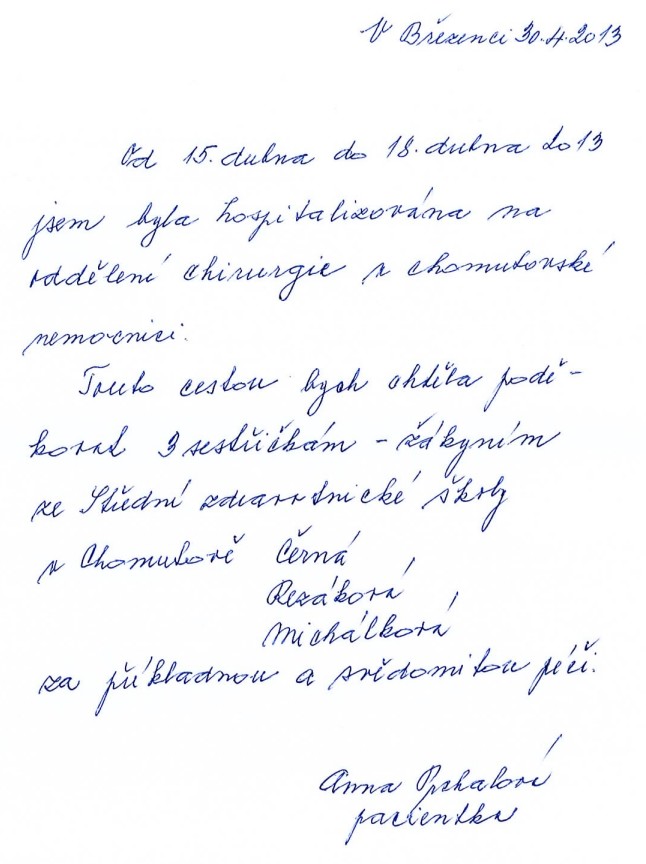 V Březenci 30.4.2013
Od 15. dubna do 18. dubna 2013
jsem byla hospitalizována na
oddělení chirurgie v chomutovské
nemocnici.
Touto cestou bych chtěla podě-
kovat 3 sestřičkám - žákyním
ze Střední zdravotnické školy
v Chomutově Černá
Rezáková
Michálková
za příkladnou a svědomitou péči.
Anna
pacientka